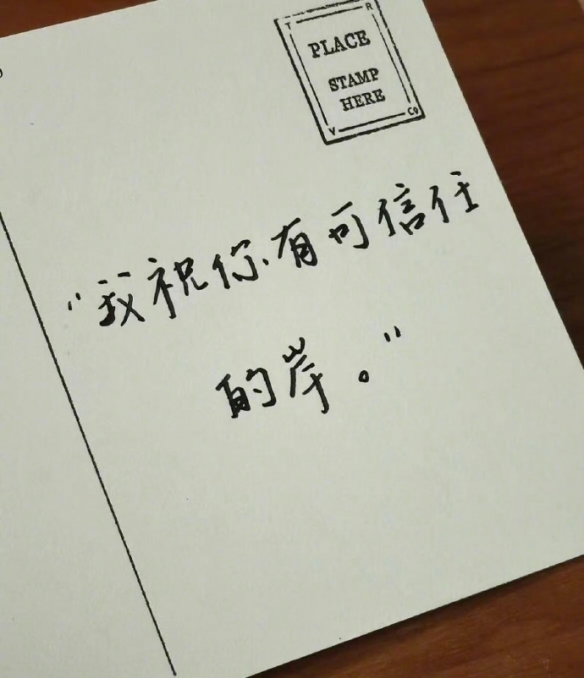 T R
PLACE
STAMP
HERE
V Co
“我祝你有可信任
的岸。”